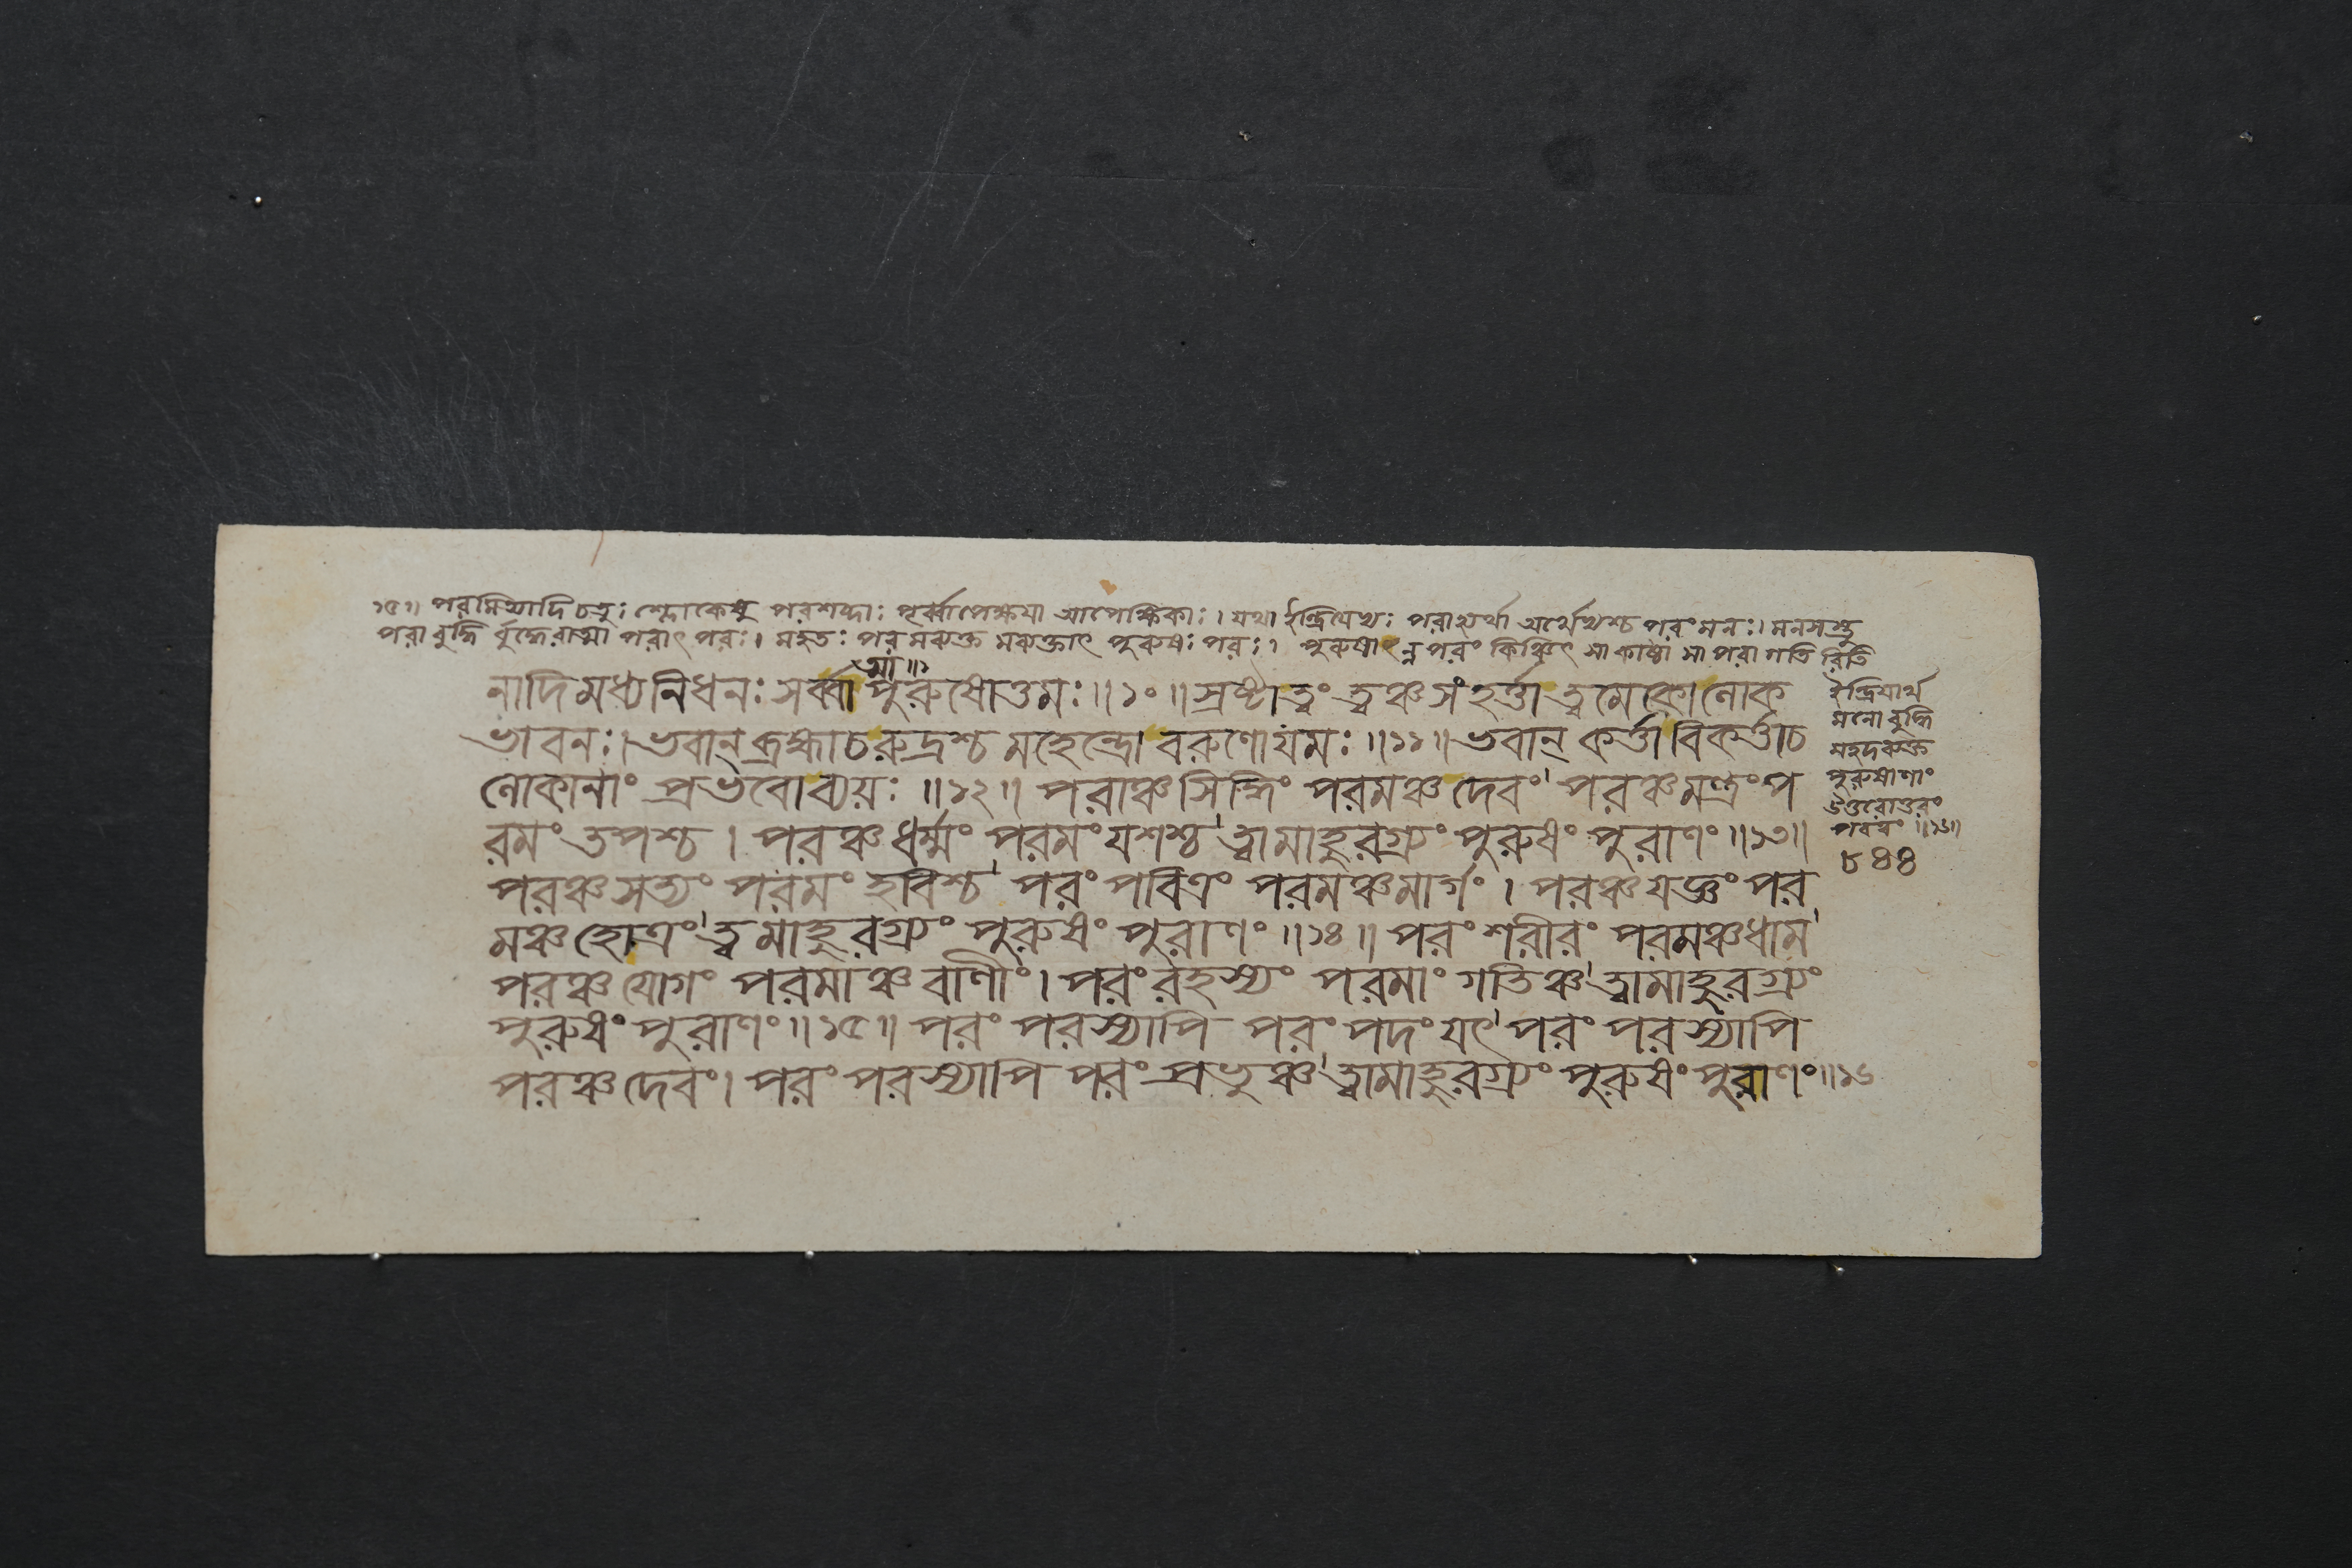 ১৫॥ পরমিত্যাদি চতুঃ শ্লোকেষু পরশব্দাঃ পূর্ব্বাপেক্ষয়া আপেক্ষিকাঃ। যথা ইন্দ্রিয়েভ্যঃ পরাহ্যর্থা অর্থেভ্যশ্চ পরং মনঃ। মনসস্তু
পরা বুদ্ধি র্বুদ্ধেরাত্মা পরাৎ পরঃ। মহতঃ পরমব্যক্ত মব্যক্তাৎ পুরুষঃ পরঃ। পুরুষান্ন পরং কিঞ্চিৎ সা কাষ্ঠা সা পরা গতি রিতি
ত্মা॥১
নাদিমধ্যনিধনঃ সর্ব্বা পুরুষোত্তমঃ॥১০॥ স্রষ্টাত্বং ত্বঞ্চ সংহর্ত্তা ত্বমেকো লোক
ভাবনঃ। ভবান্ ব্রহ্মাচ রুদ্রশ্চ মহেন্দ্রো বরুণো যমঃ॥১১॥ ভবান্ কর্ত্তা বিকর্ত্তাচ
লোকানাং প্রভবোব্যয়ঃ॥১২॥ পরাঞ্চ সিদ্ধিং পরমঞ্চ দেবং' পরঞ্চ মন্ত্রং প
রমং তপশ্চ। পরঞ্চ ধর্ম্মং পরমং যশশ্চ' ত্বামাহুরগ্র্যং পুরুষং পুরাণং॥১৩॥
পরঞ্চ সত্যং পরমং হবিশ্চ' পরং পবিত্রং পরমঞ্চ মার্গং। পরঞ্চ যজ্ঞং পর
মঞ্চ হোত্রং' ত্বমাহুরগ্র্যং পুরুষং পুরাণং॥১৪॥ পরং শরীরং পরমঞ্চ ধাম'
পরঞ্চ যোগং পরমাঞ্চ বাণীং। পরং রহস্যং পরমাং গতিঞ্চ' ত্বামাহুরগ্র্যং
পুরুষং পুরাণং॥১৫॥ পরং পরস্যাপি পরং পদং যৎ' পরং পরস্যাপি
পরঞ্চ দেবং। পরং পরস্যাপি পরং প্রভুঞ্চ' ত্বামাহুরগ্র্যং পুরুষং পুরাণং॥১৬
ইন্দ্রিয়ার্থ
মনো বুদ্ধি
মহদব্যক্ত
পুরুষাণাং
উত্তরোত্তরং
পরত্বং॥১৬॥
৮৪৪